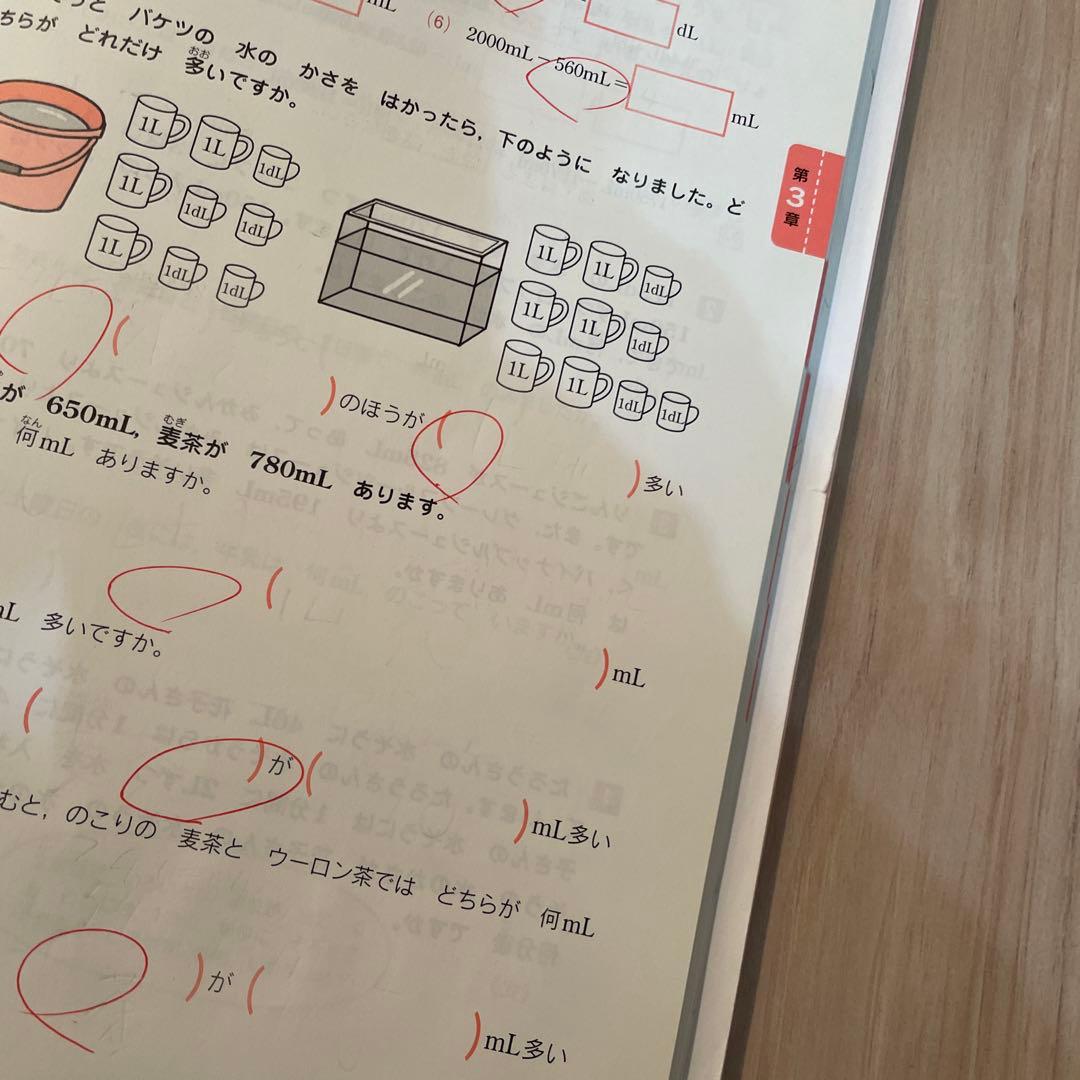 mL
dL
(6) 2000mL－560mL＝ mL
と バケツの 水の かさを はかったら，下のように なりました。ど
ちらが どれだけ 多いですか。
おお
第3章
1L 1L 1dL
1L 1dL 1dL
1L 1dL 1dL
1L 1L 1dL
1L 1L 1dL
1L 1L 1dL 1dL
( )のほうが( )多い
が 650mL，麦茶が 780mL あります。
むぎ
何mL ありますか。
なん
( )mL
mL 多いですか。
( )が( )mL多い
むと，のこりの 麦茶と ウーロン茶では どちらが 何mL
)が( )mL多い